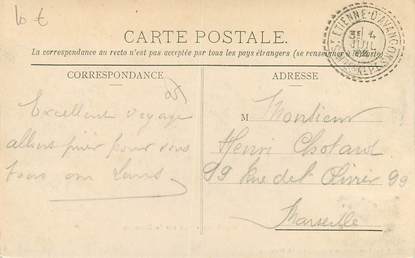 10 €
CARTE POSTALE.
La correspondance au recto n'est pas acceptée par tous les pays étrangers (se renseigner à la Poste)
ST ETIENNE-D'AVANÇON
CORRESPONDANCE
ADRESSE
(05)
Excellent voyage
pour vous
tous
M Monsieur
Henri Chotard
99 Rue de l'Olivier 99
Marseille